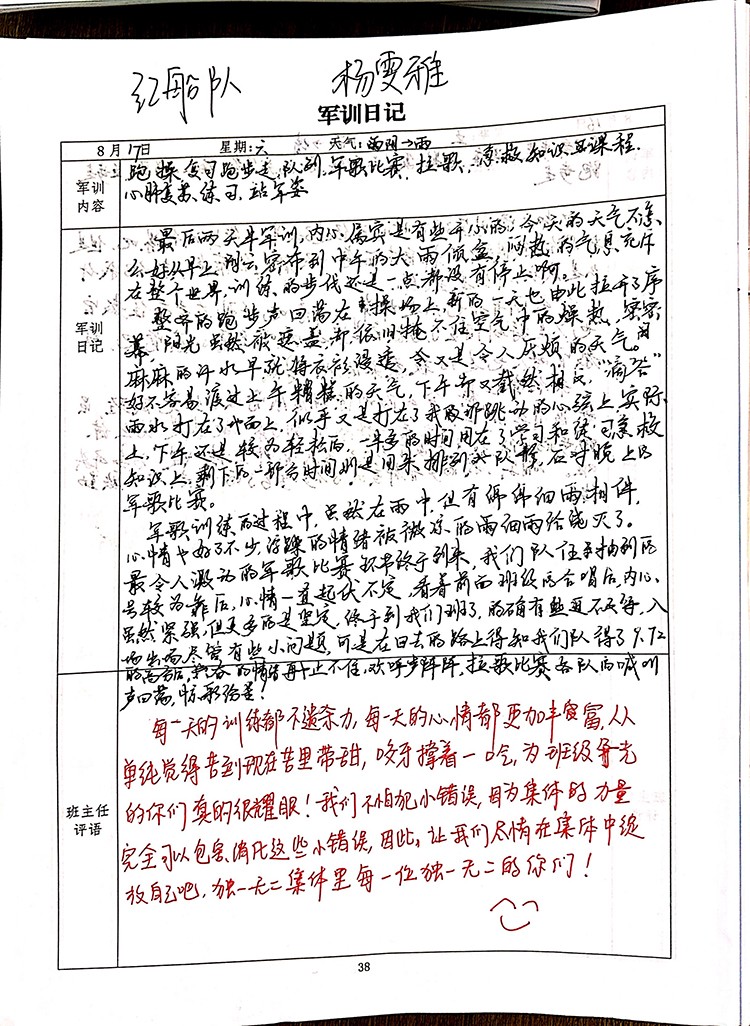 红船队 杨雯雅
军训日记
8月17日 星期:六 天气:雨阴→雨
军训内容
跑操复习跑步走,队列,军歌比赛,拉歌,急救知识及课程.
心肺复苏练习,站军姿
军训日记
最后两天半军训,内心属实是有些开心的;今天的天气不怎
么好从早上阴云密布到中午的大雨倾盆,闷热的气息充斥
在整个世界,训练的步伐还是一点都没有停止啊。
整齐的跑步声回荡在操场上,新的一天也由此拉开了序
幕,阳光虽然被遮盖却依旧掩不住空气中的燥热,密密
麻麻的汗水早就将衣衫浸透,又是令人厌烦的天气。
好不容易渡过上午糟糕的天气,下午却又截然相反,“滴答”
雨水打在了地面上,似乎又是打在了我那跳动的心弦上,实际
上,下午还是较为轻松的,一半多的时间用在了学习和练习急救
知识上,剩下的一部分时间则是用来排列队形,应对晚上的
军歌比赛。
军歌训练的过程中,虽然在雨中,但有绵绵细雨相伴,
心情也好了不少,浮躁的情绪被微凉的雨细雨给浇灭了。
最令人激动的军歌比赛环节终于到来,我们队伍抽到的
号较为靠后,心情一直起伏不定,看着前面班级的合唱后,内心
虽然紧张,但更多的是坚定,终于到我们班了,的确有些更不再等,入
场出场尽管有些小问题,可是在回去的路上得知我们队得了9.72
的高分后,的情绪再也止不住,欢呼声阵阵,拉歌比赛各队的喊叫
声回荡,精彩纷呈!
班主任评语
每一天的训练都不遗余力,每一天的心情都更加丰富,从
单纯觉得苦到现在苦里带甜,咬牙撑着一口气,为班级争光
的你们真的很耀眼!我们不怕犯小错误,因为集体的力量
完全可以包容、消化这些小错误,因此,让我们尽情在集体中绽
放自己吧,独一无二集体里每一位独一无二的你们!
38